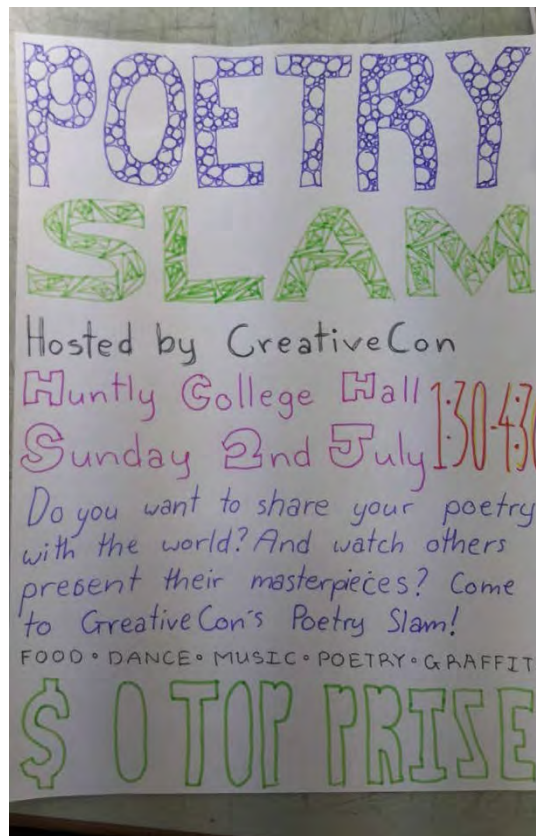 POETRY
SLAM
Hosted by CreativeCon
Huntly College Hall
Sunday 2nd July 1:30-4:30
Do you want to share your poetry
with the world? And watch others
present their masterpieces? Come
to CreativeCon's Poetry Slam!
FOOD • DANCE • MUSIC • POETRY • GRAFFIT
$ 0 TOP PRIZE